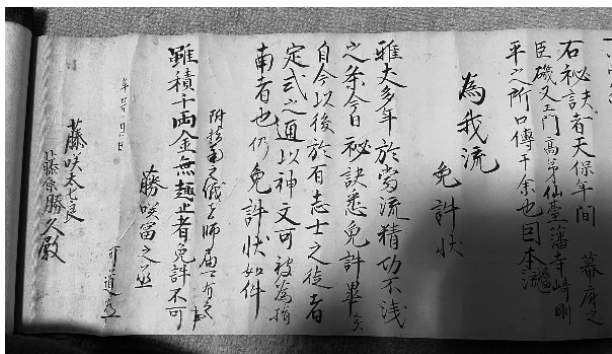 右秘訣者天保年間 幕府之
臣磯又エ門高弟仙臺藩寺崎剛
平之所口傳于余也因本流
為我流
免許状
雅丈多年於當流精功不浅
之条今日秘訣悉免許畢矣
自今以後於有志士之徒者
定式之通以神文可被為指
南者也仍免許状如件
附指南之儀者師届可有之事
雖積千両金無趣止者免許不可
年号月日
藤咲富之丞
藤咲太良
藤原勝久殿